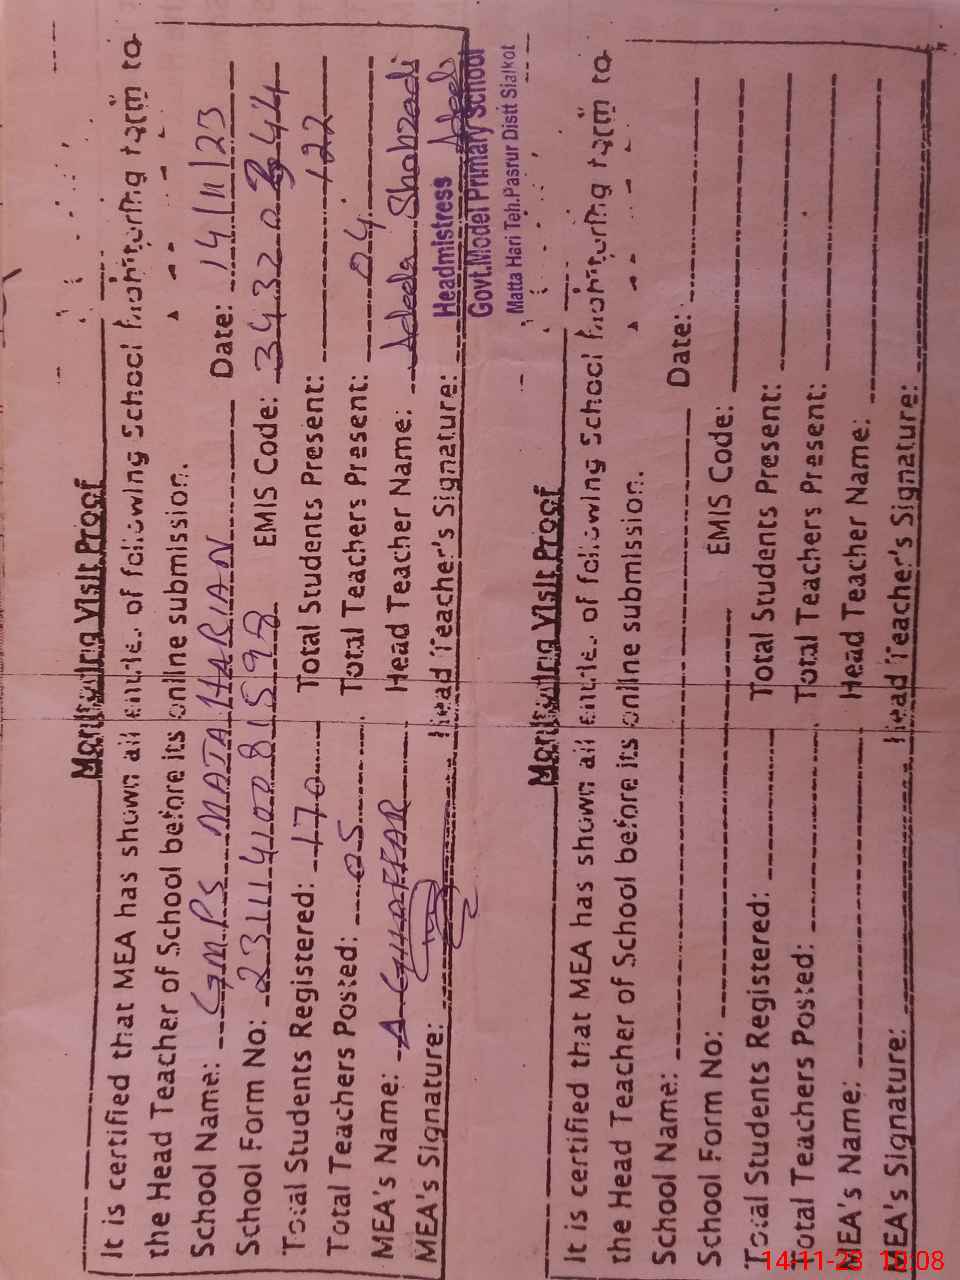 Monitoring Visit Proof
It is certified that MEA has shown all entries of following School Monitoring Farm to
the Head Teacher of School before its online submission.
School Name: GMPS MATA HARIAN Date: 14/11/23
School Form No: 2311140081598 EMIS Code: 34320344
Total Students Registered: 170 Total Students Present: 122
Total Teachers Posted: 05 Total Teachers Present: 04
MEA's Name: A GHAFFAR Head Teacher Name: Adeela Shahzadi
MEA's Signature: Head Teacher's Signature: Adeela
Headmistress
Govt.Model Primary School
Matta Hari Teh.Pasrur Distt Sialkot
Monitoring Visit Proof
It is certified that MEA has shown all entries of following School Monitoring Farm to
the Head Teacher of School before its online submission.
School Name: Date:
School Form No: EMIS Code:
Total Students Registered: Total Students Present:
Total Teachers Posted: Total Teachers Present:
MEA's Name: Head Teacher Name:
MEA's Signature: Head Teacher's Signature: